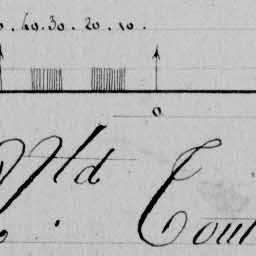 40. 30. 20. 10.
0
Old Cou